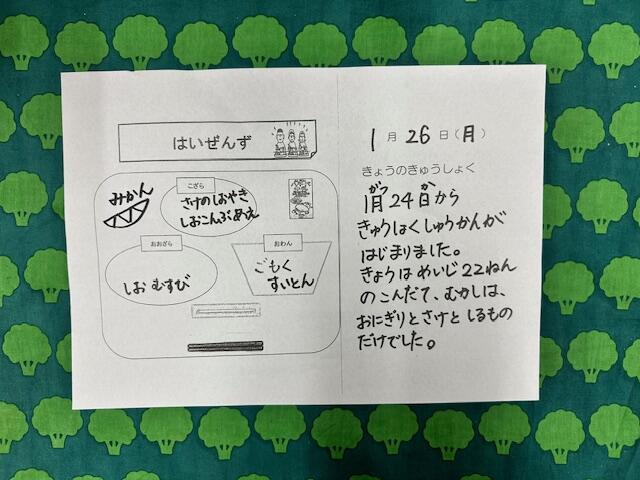 はいぜんず
みかん
こざら
さけのしおやき
しおこんぶあえ
おおざら
しお むすび
おわん
ごもく
すいとん
1月26日(月)
きょうのきゅうしょく
がつ か
1月24日から
きゅうしょくしゅうかんが
はじまりました。
きょうは めいじ 22ねん
のこんだて、むかしは、
おにぎりとさけと しるもの
だけでした。